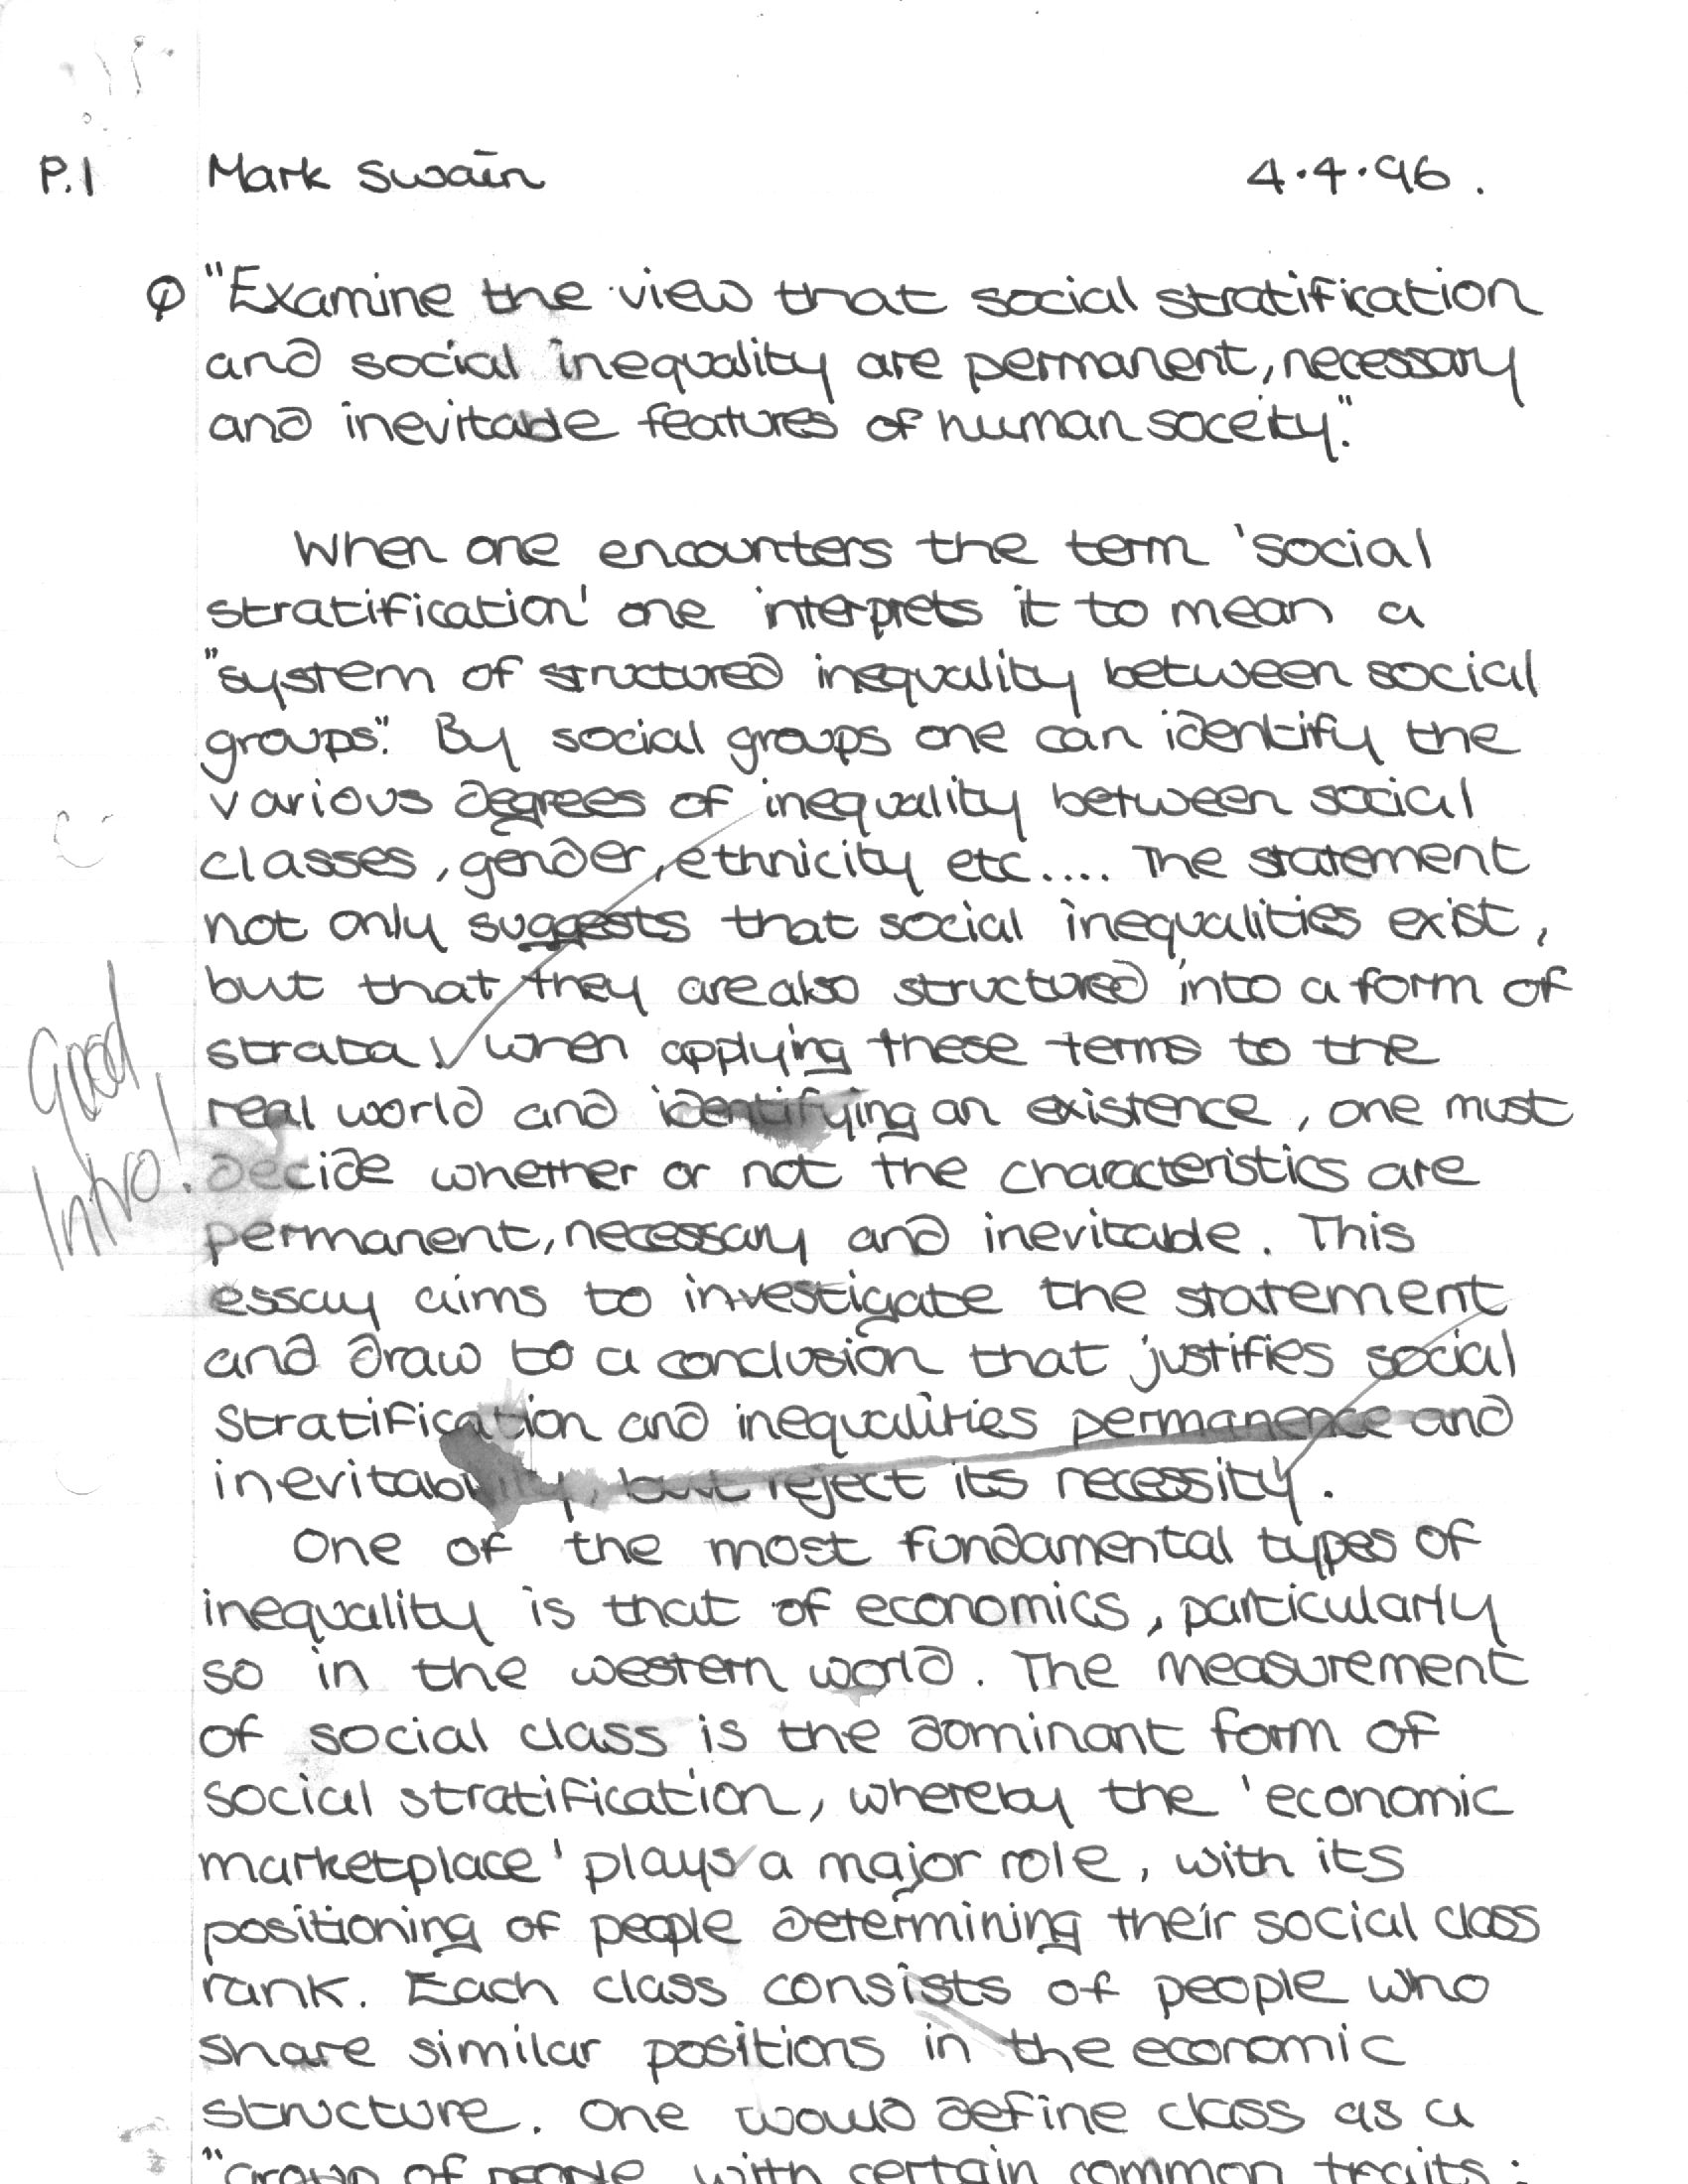 P.1 Mark Swain 4.4.96.
Q "Examine the view that social stratification
and social inequality are permanent, necessary
and inevitable features of human soceity."
When one encounters the term 'social
stratification' one interprets it to mean a
"system of structured inequality between social
groups". By social groups one can identify the
various degrees of inequality between social
classes, gender, ethnicity etc.... The statement
not only suggests that social inequalities exist,
but that they are also structured into a form of
strata. When applying these terms to the
real world and identifying an existence, one must
decide whether or not the characteristics are
permanent, necessary and inevitable. This
essay aims to investigate the statement
and draw to a conclusion that justifies social
stratification and inequalities permanence and
inevitability, but reject its necessity.
Good
Intro!
One of the most fundamental types of
inequality is that of economics, particularly
so in the western world. The measurement
of social class is the dominant form of
social stratification, whereby the 'economic
marketplace' plays a major role, with its
positioning of people determining their social class
rank. Each class consists of people who
share similar positions in the economic
structure. One would define class as a
"group of people with certain common traits: